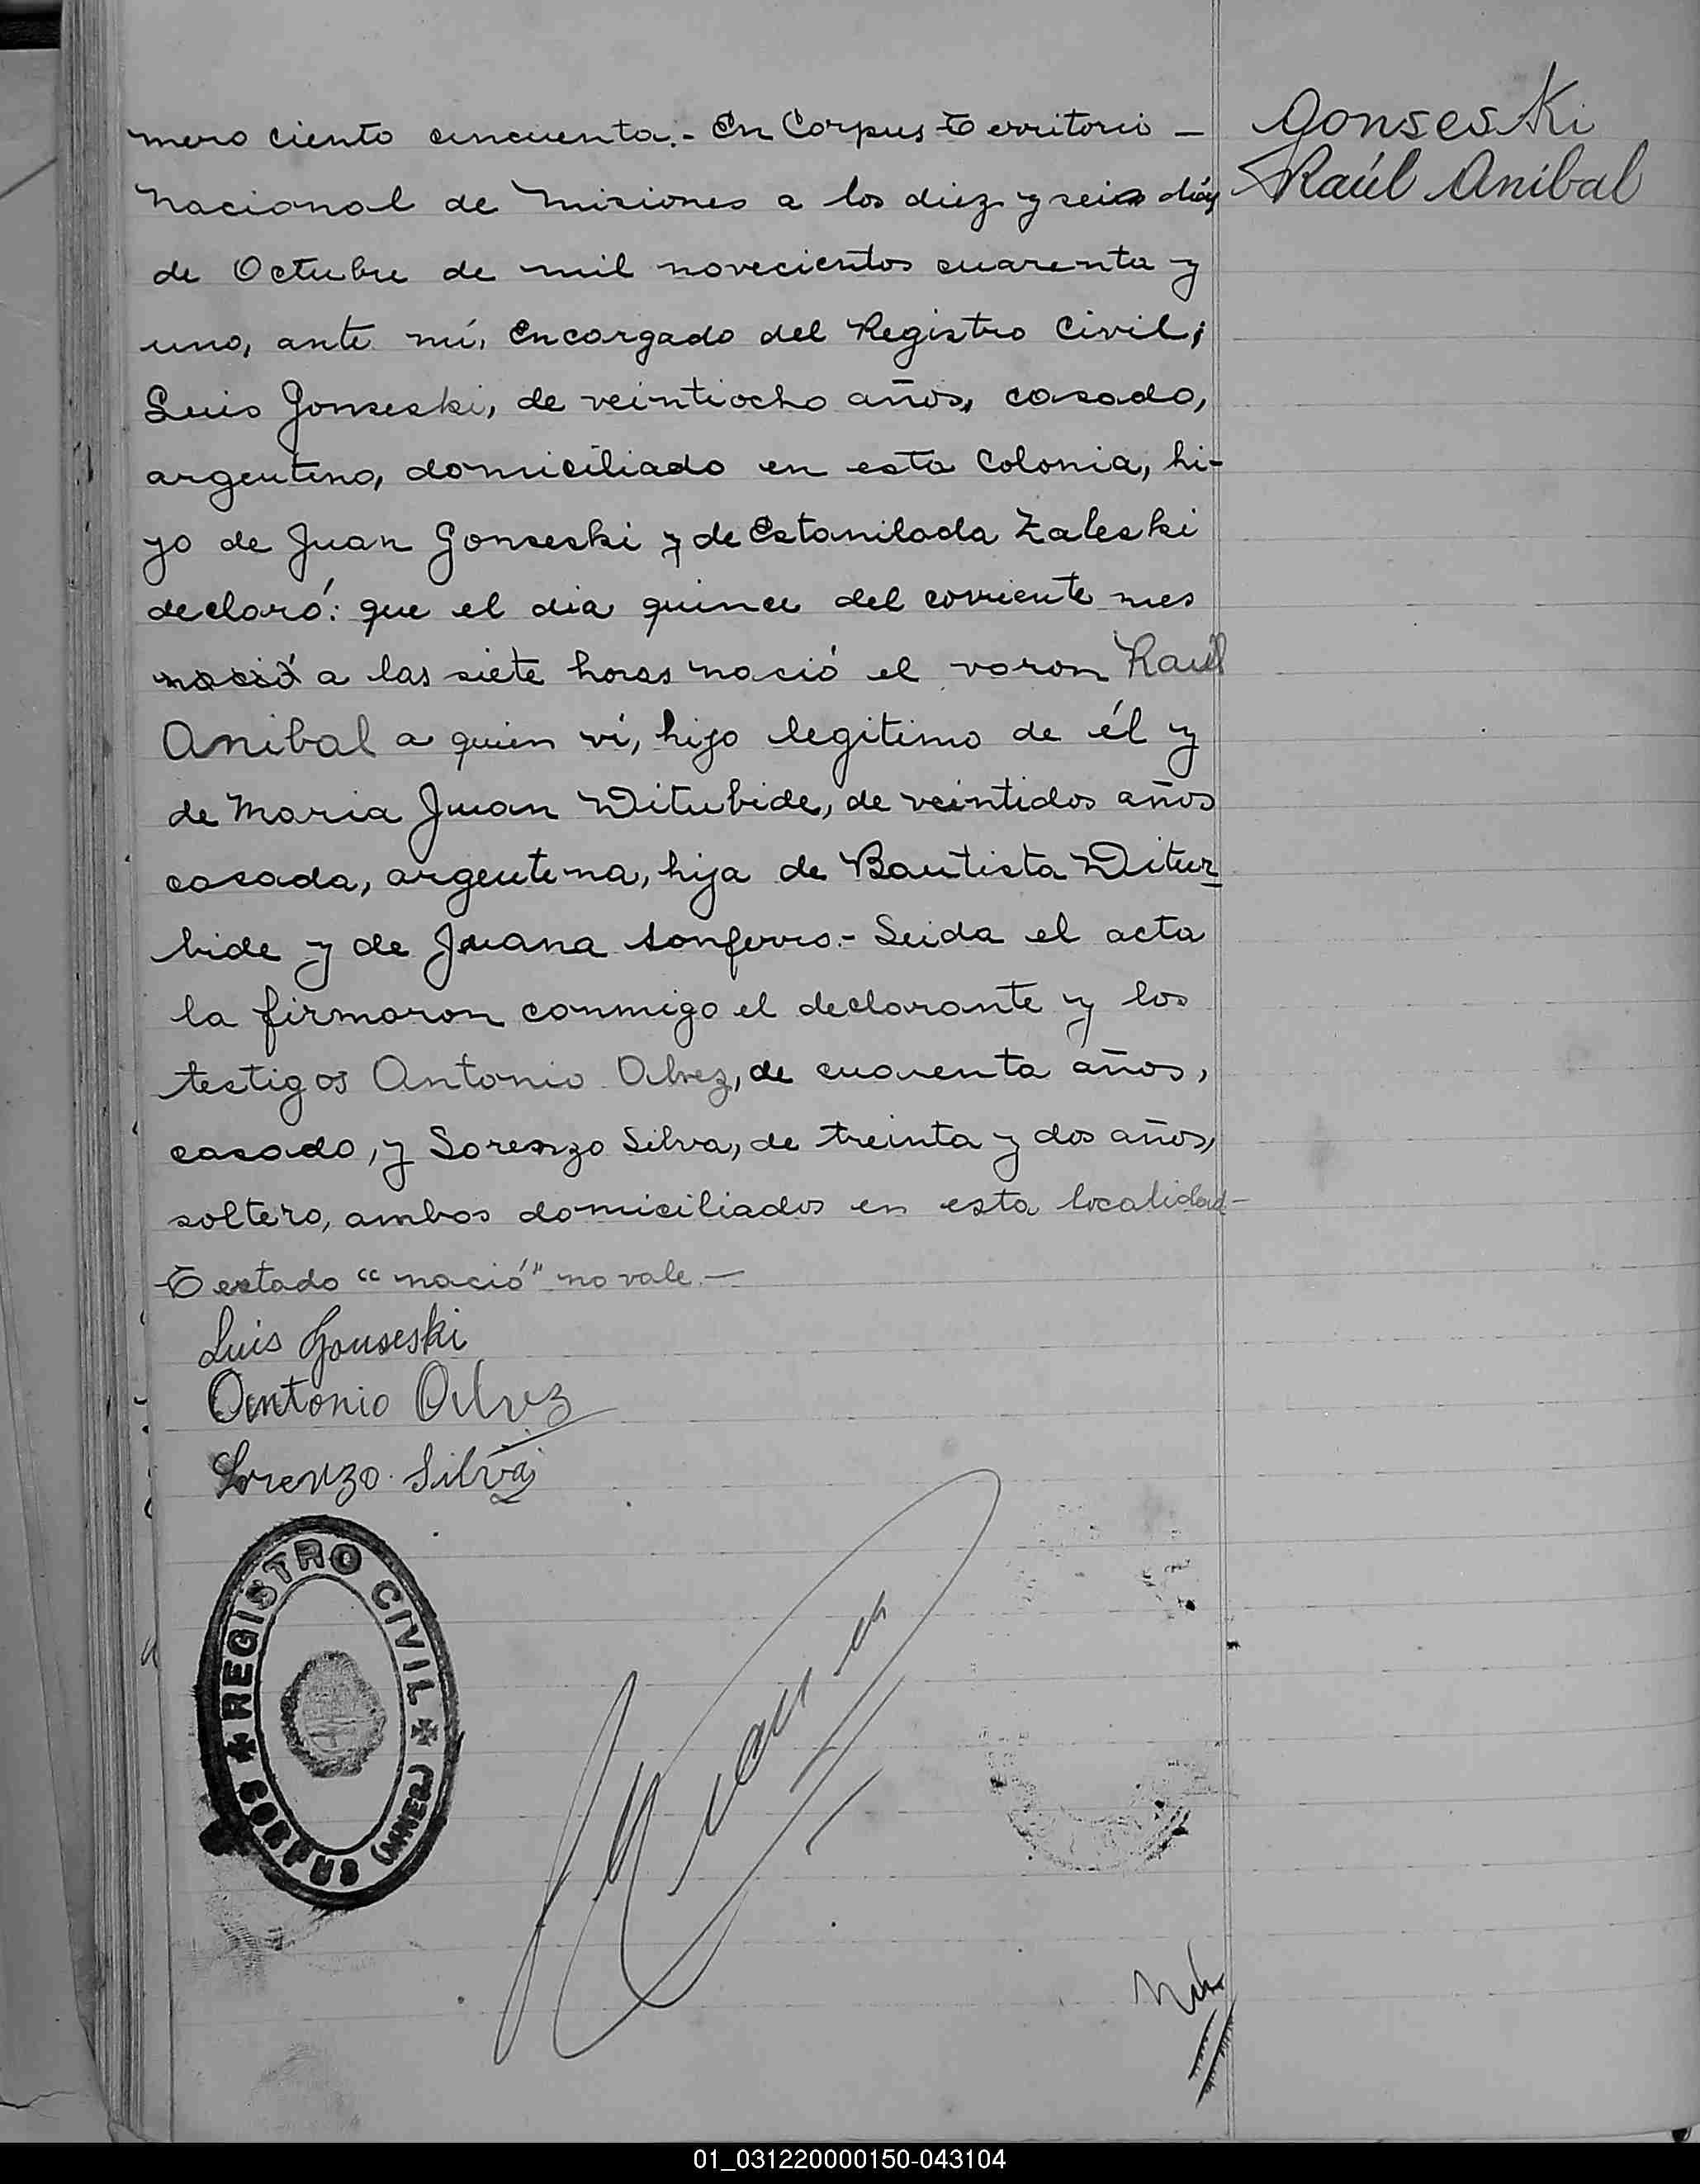 mero ciento cincuenta.- En Corpus Territorio -
Nacional de Misiones a los diez y seis días
de Octubre de mil novecientos cuarenta y
uno, ante mí, Encargado del Registro Civil;
Luis Gonseski, de veintiocho años, casado,
argentino, domiciliado en esta Colonia, hi-
jo de Juan Gonseski y de Estanilada Zaleski
declaró: que el dia quince del corriente mes
nació a las siete horas nació el varon Raúl
Anibal a quien ví, hijo legitimo de él y
de Maria Juan Ditubide, de veintidos años
casada, argentina, hija de Bautista Ditur-
bide y de Juana Sonferro.- Leida el acta
la firmaron conmigo el declarante y los
testigos Antonio Alvez, de cuarenta años,
casado, y Lorenzo Silva, de treinta y dos años,
soltero, ambos domiciliados en esta localidad-
Testado "nació" no vale.-
Luis Gonseski
Antonio Alvez
Lorenzo Silva
Gonseski
Raúl Anibal
REGISTRO CIVIL
CORPUS (MNES)
01_031220000150-043104